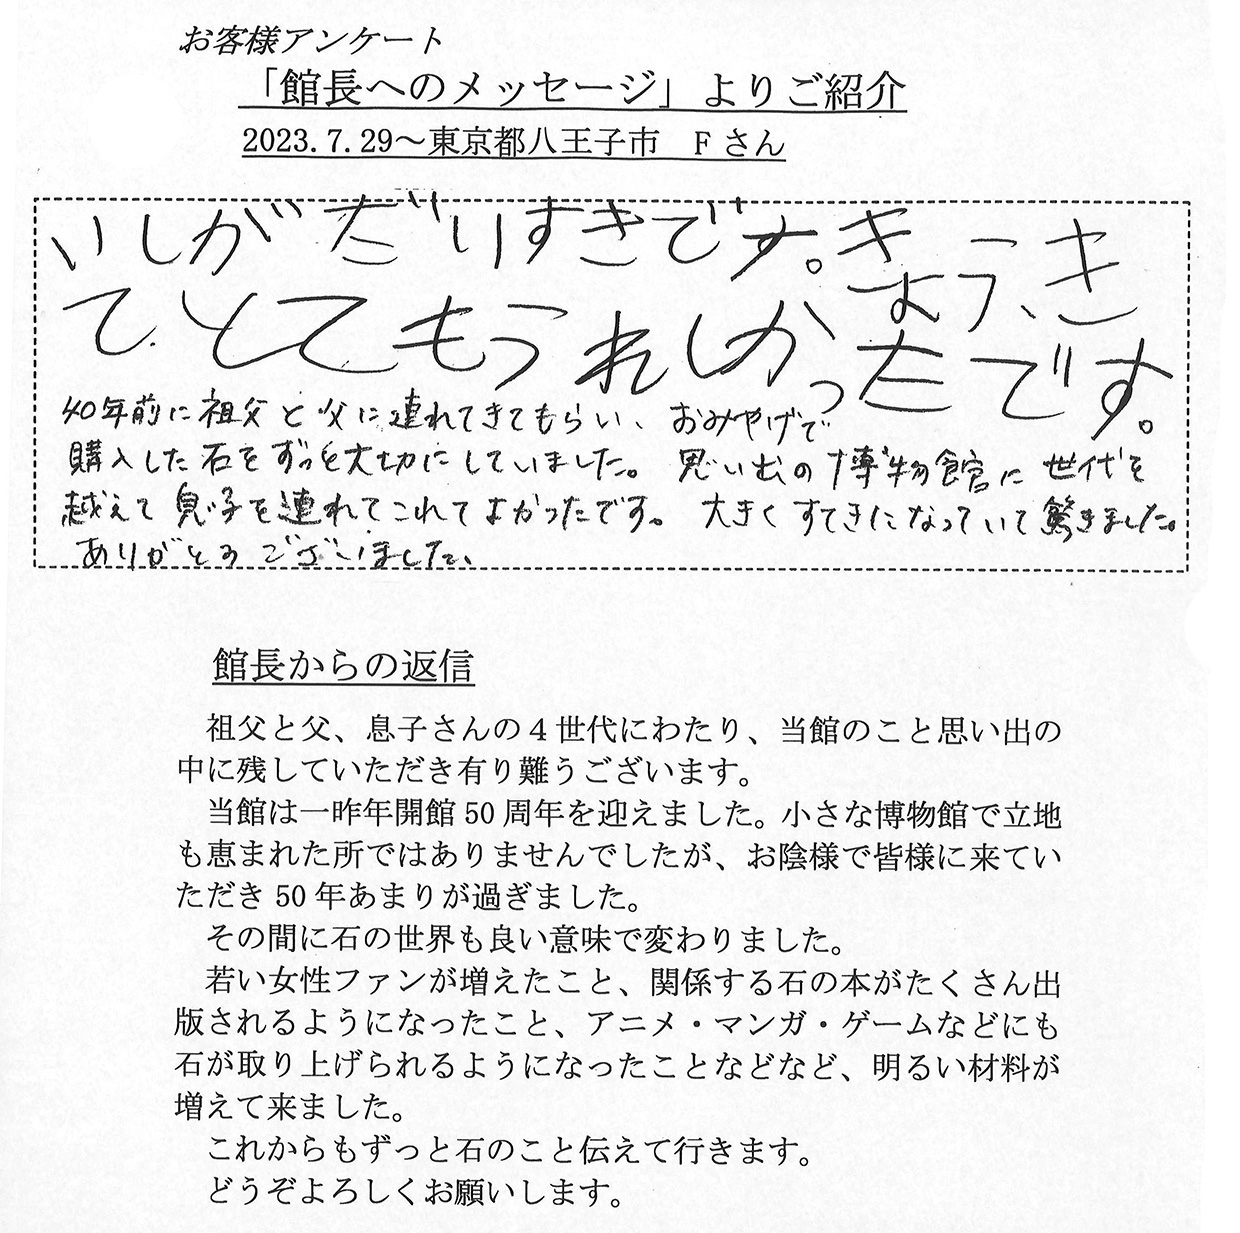 お客様アンケート
「館長へのメッセージ」よりご紹介
2023.7.29～東京都八王子市　Fさん
いしがだいすきです。きょう、き
て、とてもうれしかったです。
40年前に祖父と父に連れてきてもらい、おみやげで
購入した石をずっと大切にしていました。思い出の博物館に世代を
越えて息子を連れてこれてよかったです。大きくすてきになっていて驚きました。
ありがとうございました。
館長からの返信
祖父と父、息子さんの４世代にわたり、当館のこと思い出の
中に残していただき有り難うございます。
当館は一昨年開館50周年を迎えました。小さな博物館で立地
も恵まれた所ではありませんでしたが、お陰様で皆様に来てい
ただき50年あまりが過ぎました。
その間に石の世界も良い意味で変わりました。
若い女性ファンが増えたこと、関係する石の本がたくさん出
版されるようになったこと、アニメ・マンガ・ゲームなどにも
石が取り上げられるようになったことなどなど、明るい材料が
増えて来ました。
これからもずっと石のこと伝えて行きます。
どうぞよろしくお願いします。